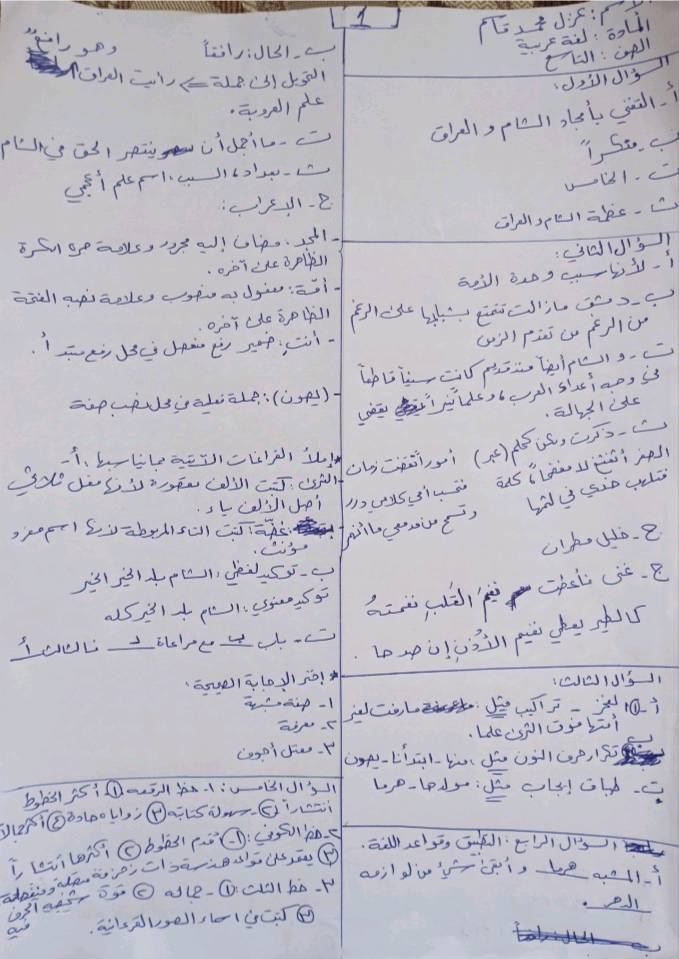 1
الاسم: غزل محمد قاسم
المادة: لغة عربية
الصف: التاسع
السؤال الأول:
أ- التغني بأمجاد الشام و العراق
ب- مفكراً
ت- الخامس
ث- عظمة الشام والعراق
السؤال الثاني:
أ- لأنها سبب وحدة الأمة
ب- دمشق مازالت تتمتع بشبابها على الرغم
من الرغم من تقدم الزمن
ت- و الشام أيضاً منذ قديم كانت سيفاً قاطعاً
في وجه أعداء العرب، وعلماً نيراً يقضي
على الجهالة.
ث- ذكرت ونحن كحلم (عبر) أمور أنقضت زمان
الصخر كلمة فتحسب أحي كلامي درر
فتلهب خدي في لثمها وتسمح من مدمعي ما انهمر
ج- خليل مطران
ح- غنى فأعطت نعيمُ القلبِ نغمتهُ
كالطير يعطي نعيم الأذنِ إن صدحا.
السؤال الثالث:
أ- ① لغز - تراكيب مثل: مارفت لغير
أمتها فوق الثرى علما.
② تكرار حرف النون مثل: منها - ابتدأنا - يصون
ت- طباق إيجاب مثل: مولدها - هرما
السؤال الرابع: التطبيق وقواعد اللغة.
أ- المشبه هرما و أبقى شيء من لوازمه
الدهر.
ب- الحال: رافعاً
التحويل إلى جملة <= رأيت العراق وهو رافع
علم العروبة.
ت- ما أجمل أن ينتصر الحق في الشام
ث- بغداد، السبب: اسم علم أعجمي
ج- الإعراب:
- المجد: مضاف إليه مجرور وعلامة جره الكسرة
الظاهرة على آخره.
- أمّة: مفعول به منصوب وعلامة نصبه الفتحة
الظاهرة على آخره.
- أنتِ: ضمير رفع منفصل في محل رفع مبتدأ.
- (يصون): جملة فعلية في محل نصب صفة
* إملأ الفراغات الآتية بما يناسبها: أ-
- الثرى: كتبت الألف مقصورة لأنها فعل ثلاثي
أصل الألف ياء.
- عظمة: كتبت التاء المربوطة لأنها اسم مفرد
مؤنث.
ب- توكيد لفظي: الشام بلد الخير الخير
توكيد معنوي: الشام بلد الخير كله
ت- باب ب مع مراعاة د فالثالث أ
* إختر الإجابة الصحيحة:
١- صفة مشبهة
٢- معرفة
٣- معتل أجوف
السؤال الخامس: ١- خط الرقعه ① أكثر الخطوط
أنتشاراً ② سهولة كتابته ③ زواياه حادة ④ أكثر جمالاً
٢- خط الكوفي: ①- أقدم الخطوط ② أكثرها أنتشاراً
③ يعتمد على قواعد هندسية ذات زخرفة متصلة ومنفصلة
٣- خط الثلث: ①- جماله ② قوة شخصية الحرف فيه
③ كتبت في اسماء الصور القرءانية.